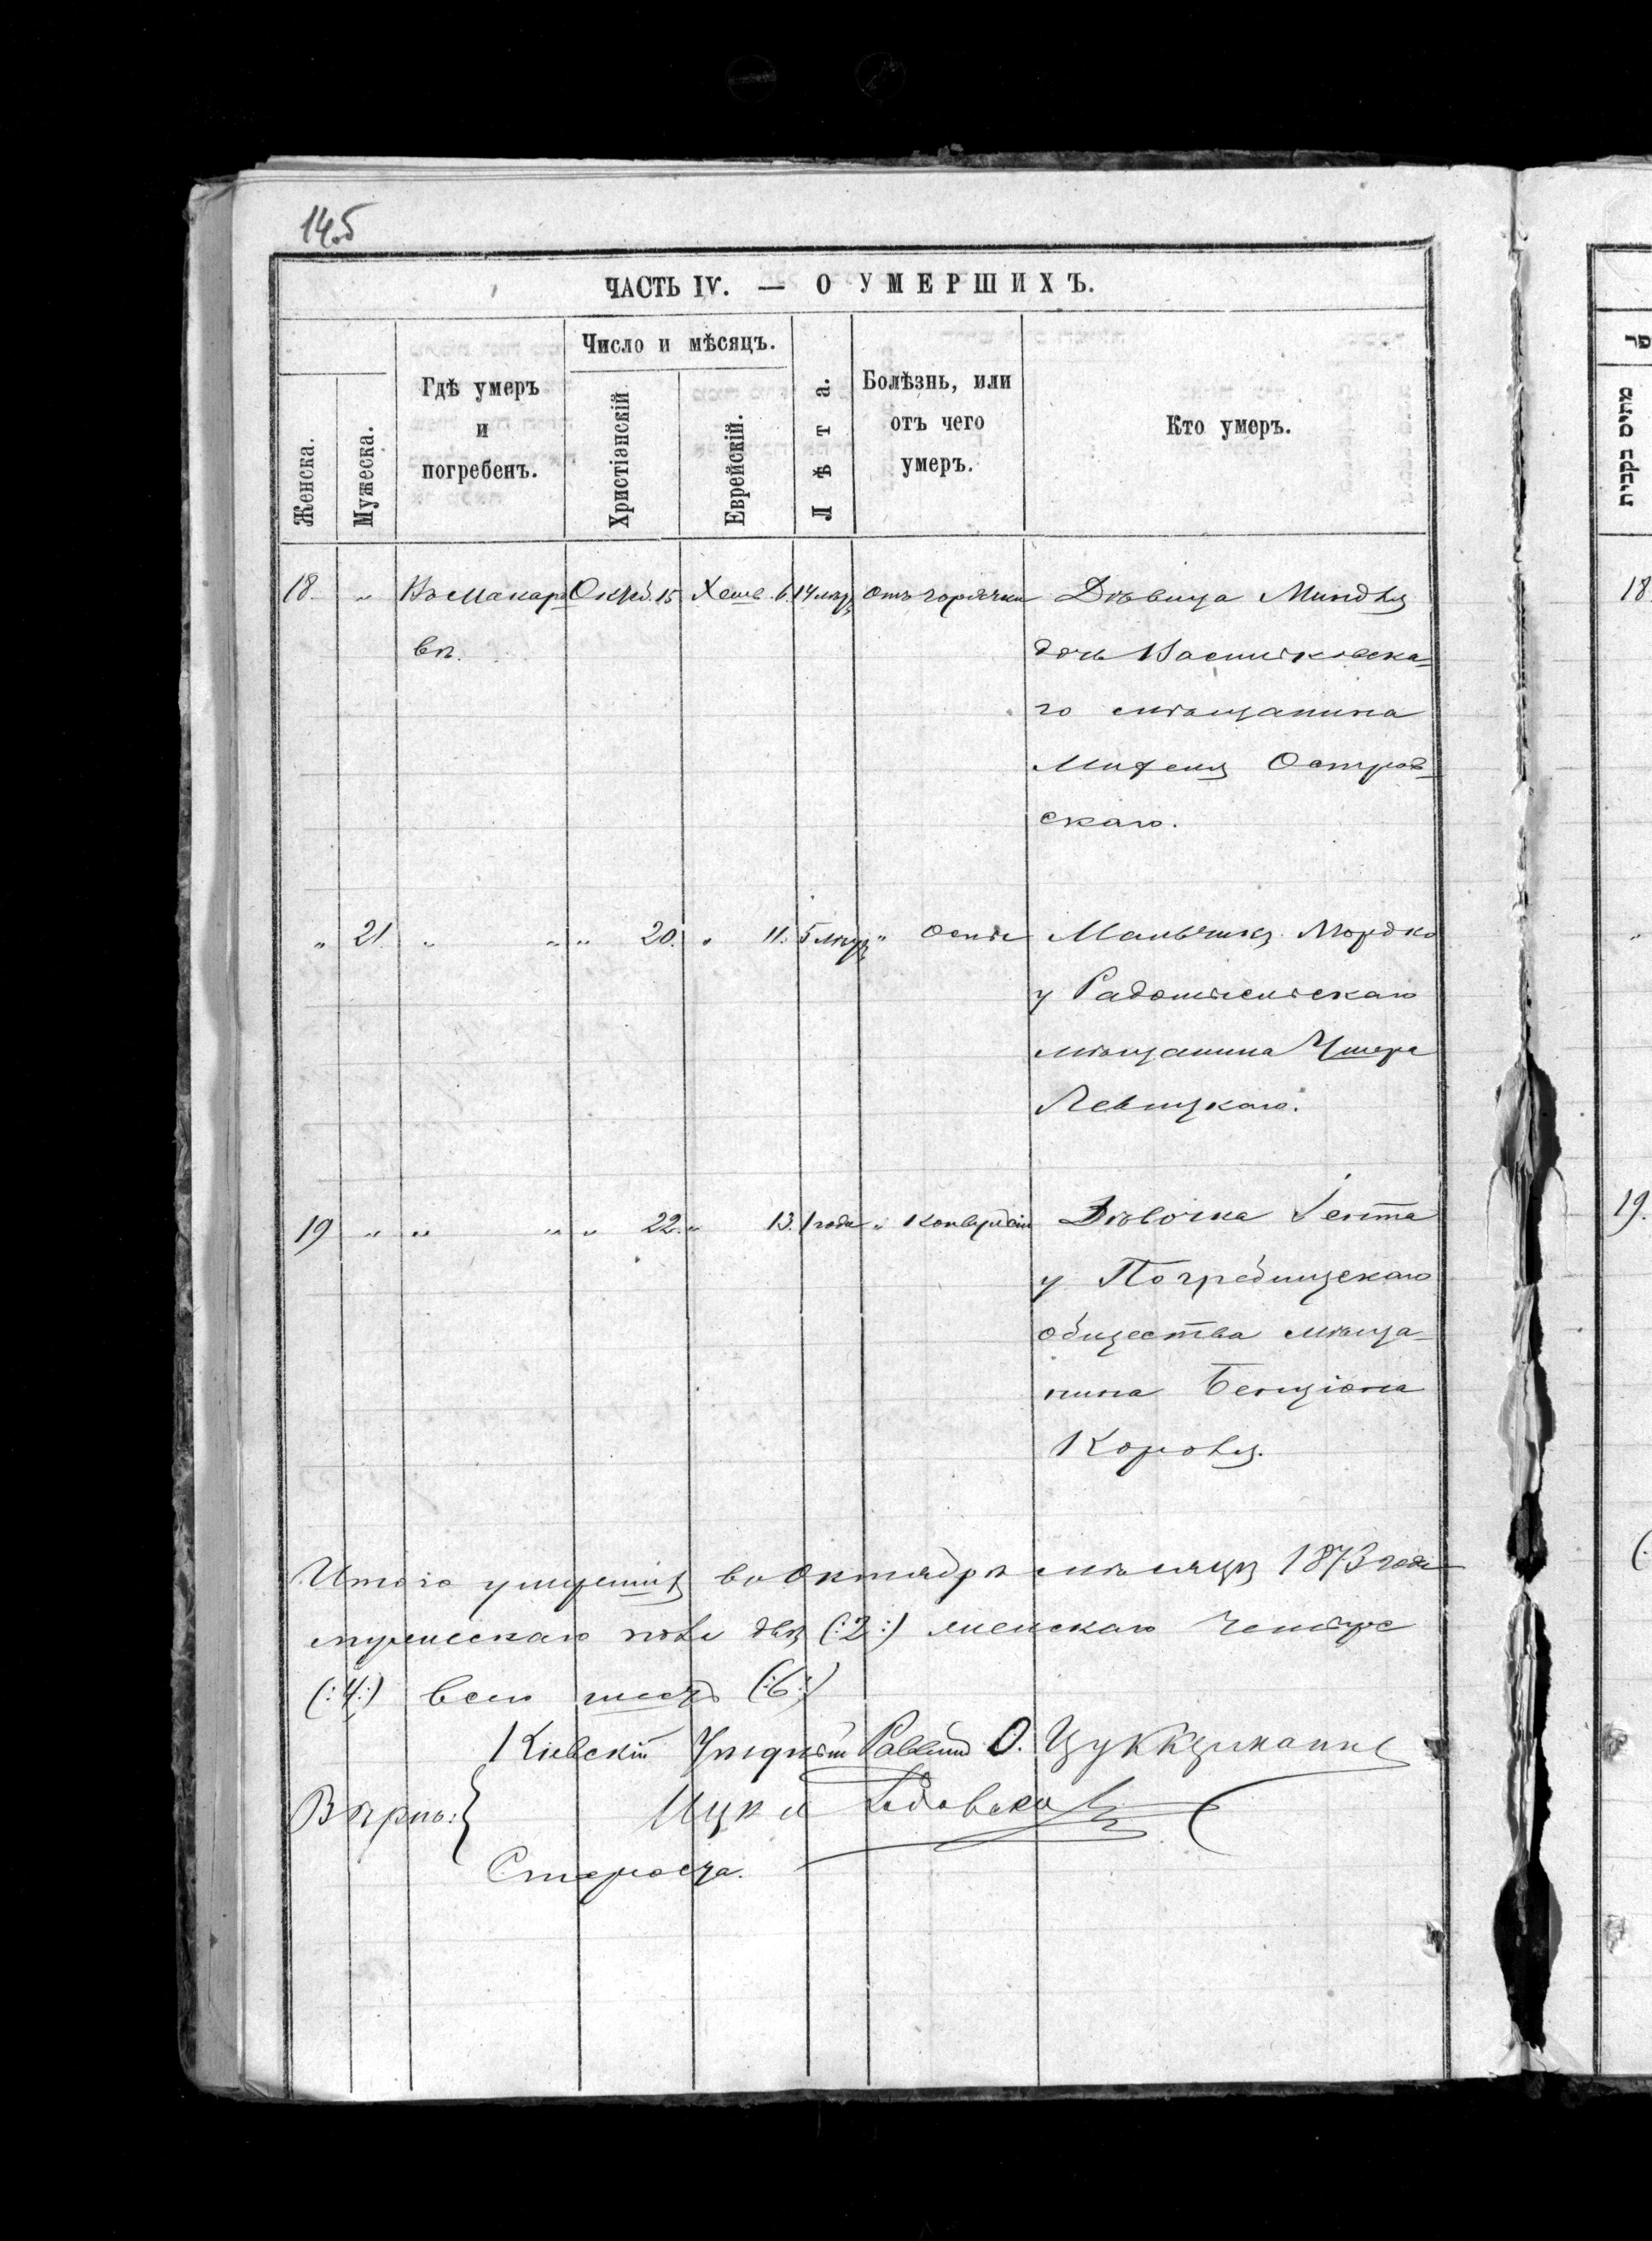 145
ЧАСТЬ IV. — О УМЕРШИХЪ.
Женска.
Мужеска.
Гдѣ умеръ
и
погребенъ.
Число и мѣсяцъ.
Христіанскій
Еврейскій.
Лѣта.
Болѣзнь, или
отъ чего
умеръ.
Кто умеръ.
18. „ Въ Макаро Октб. 15 Хешв. 6. 14 лѣтъ отъ горячки Дѣвица
вѣ. дочь Васильковска-
го мѣщанина
Островскаго.
„ 21. „ „ „ 20. „ 11. 5 лѣтъ „ Оспы Мальчикъ Мордко
у Радомысльскаго
мѣщанина Ушера
Левицкаго.
19 „ „ „ „ 22. „ 13. 1 года „ Конвульсіи Дѣвочка Іента
у Погребищскаго
общества мѣща-
нина Бенціона
Итого умершихъ въ Октябрѣ мѣсяцѣ 1873 года
мужескаго пола два (:2:) женскаго четыре
(:4:) всего шесть (:6:)
Кіевскій Уѣздный Раввинъ О. Цуккерманъ
Вѣрно: Ицко
Староста.
18
„
19.
ספר
מתים נקבות